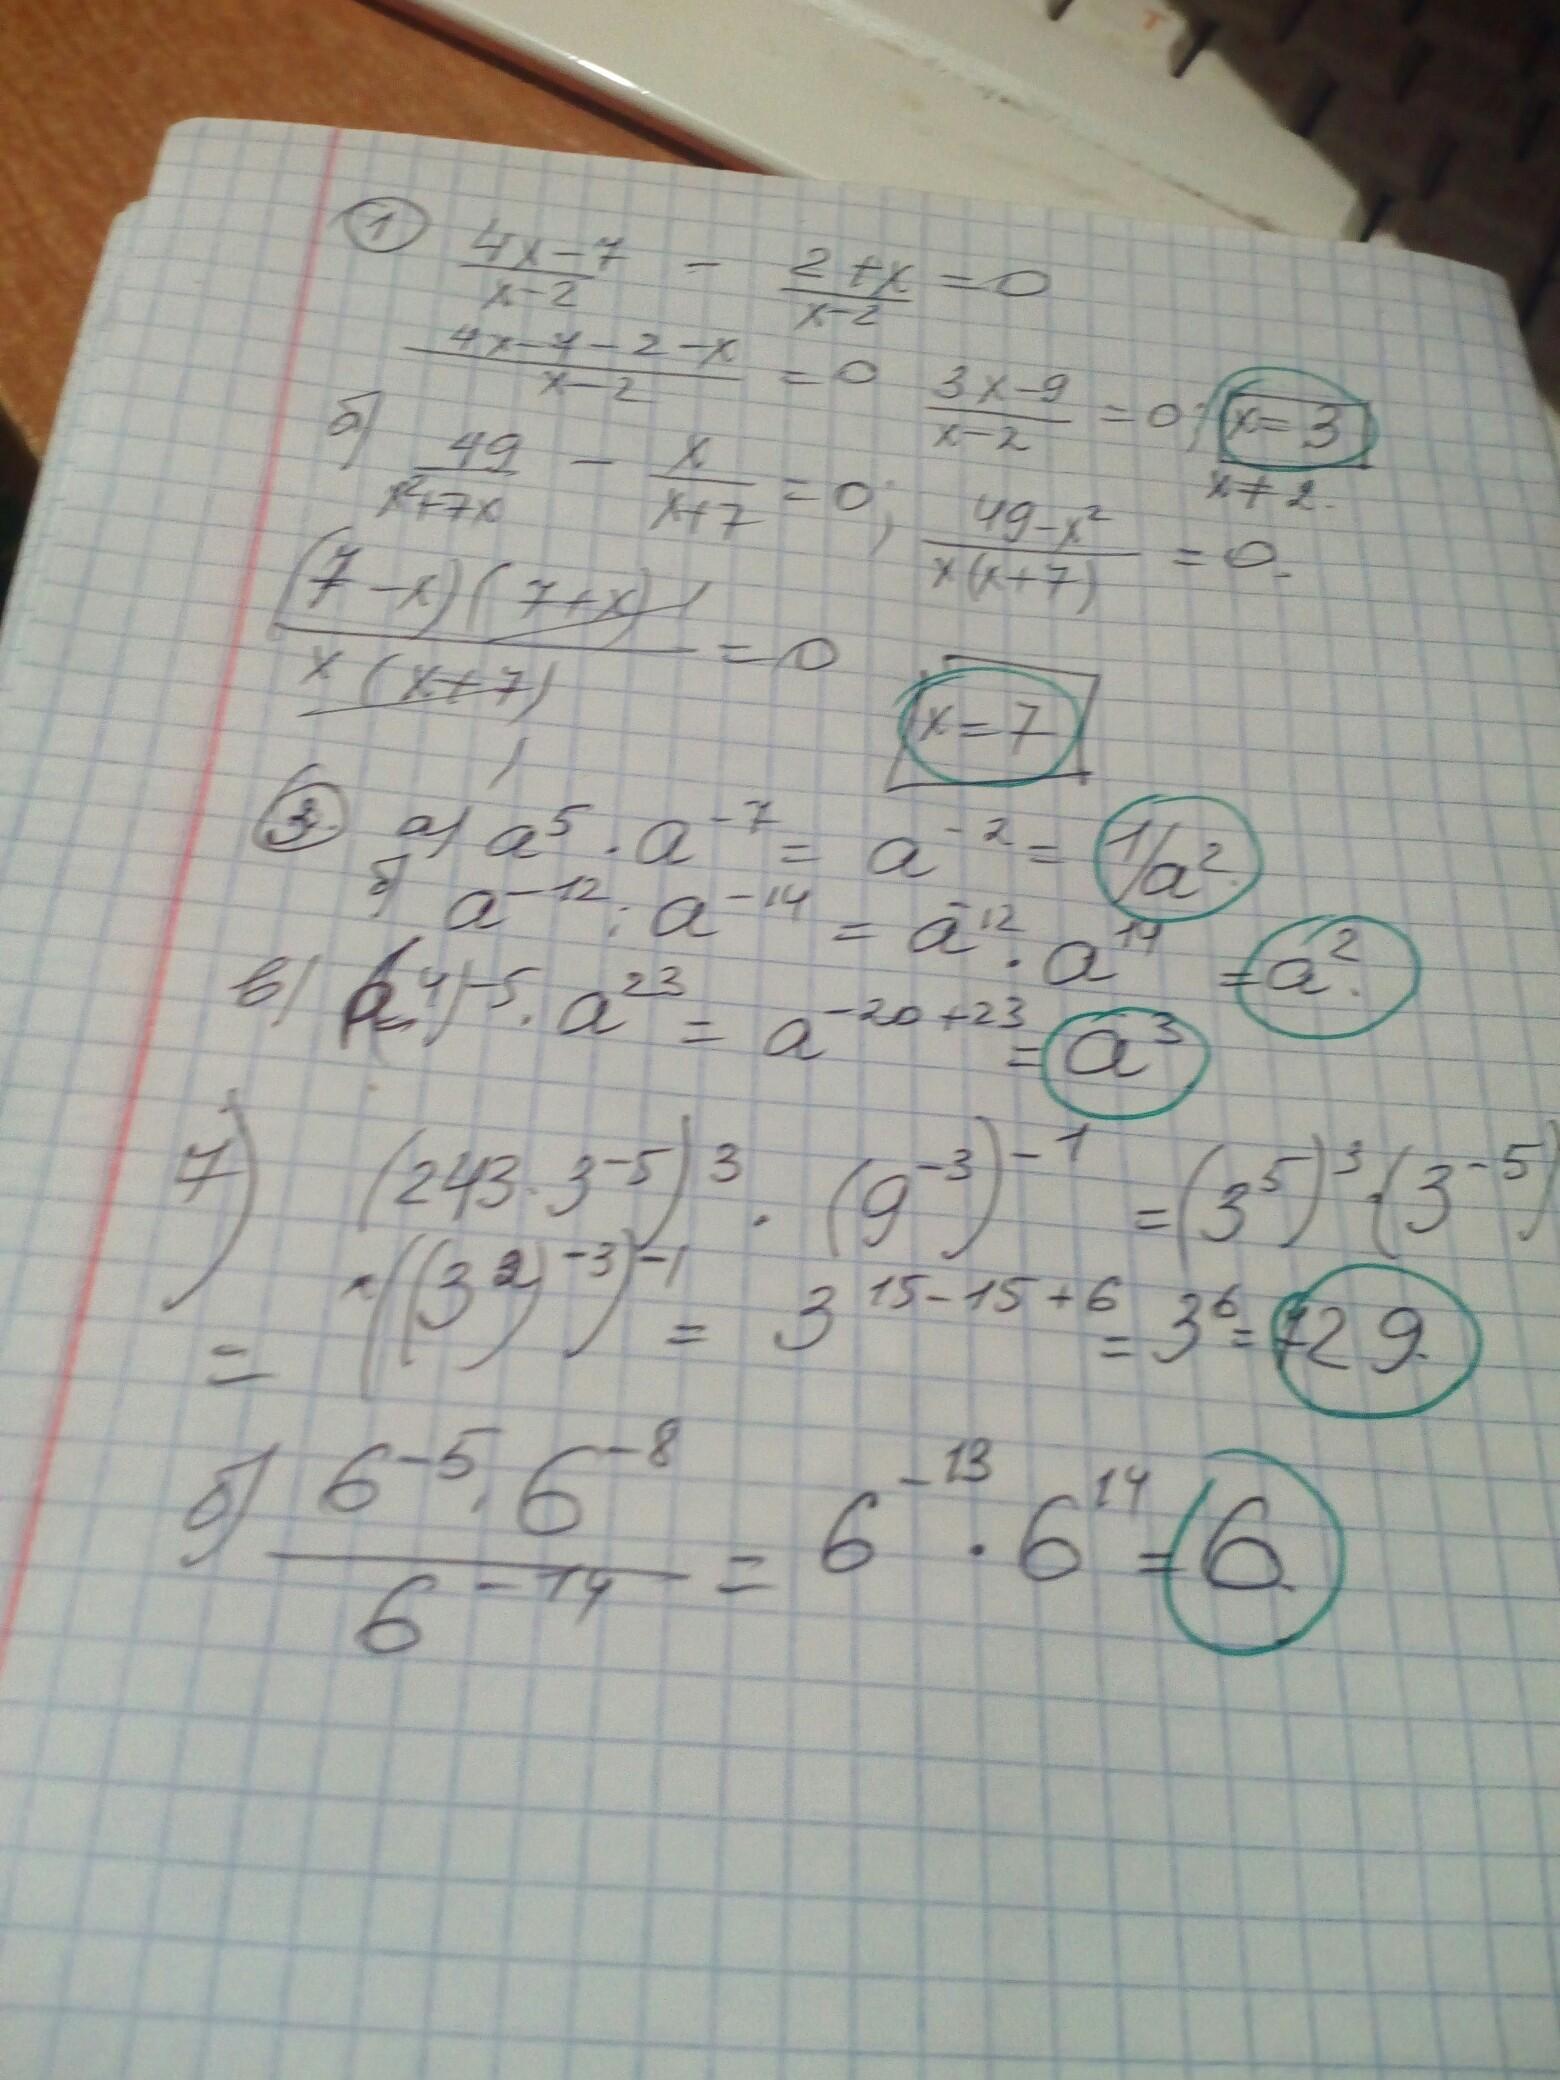 ① (4x-7)/(x-2) - (2+x)/(x-2) = 0
(4x-7-2-x)/(x-2) = 0 (3x-9)/(x-2) = 0; x=3
x≠2.
б) 49/(x²+7x) - x/(x+7) = 0; (49-x²)/(x(x+7)) = 0.
((7-x)(7+x))/(x(x+7)) = 0 x=7
③. а) a⁵·a⁻⁷ = a⁻² = 1/a².
б) a⁻¹²:a⁻¹⁴ = a⁻¹²·a¹⁴ = a².
в) (a⁴)⁻⁵·a²³ = a⁻²⁰⁺²³ = a³
7) (243·3⁻⁵)³·(9⁻³)⁻¹ = (3⁵)³·(3⁻⁵)
= ·((3²)⁻³)⁻¹ = 3¹⁵⁻¹⁵⁺⁶ = 3⁶ = 729.
б) (6⁻⁵·6⁻⁸)/6⁻¹⁴ = 6⁻¹³·6¹⁴ = 6.